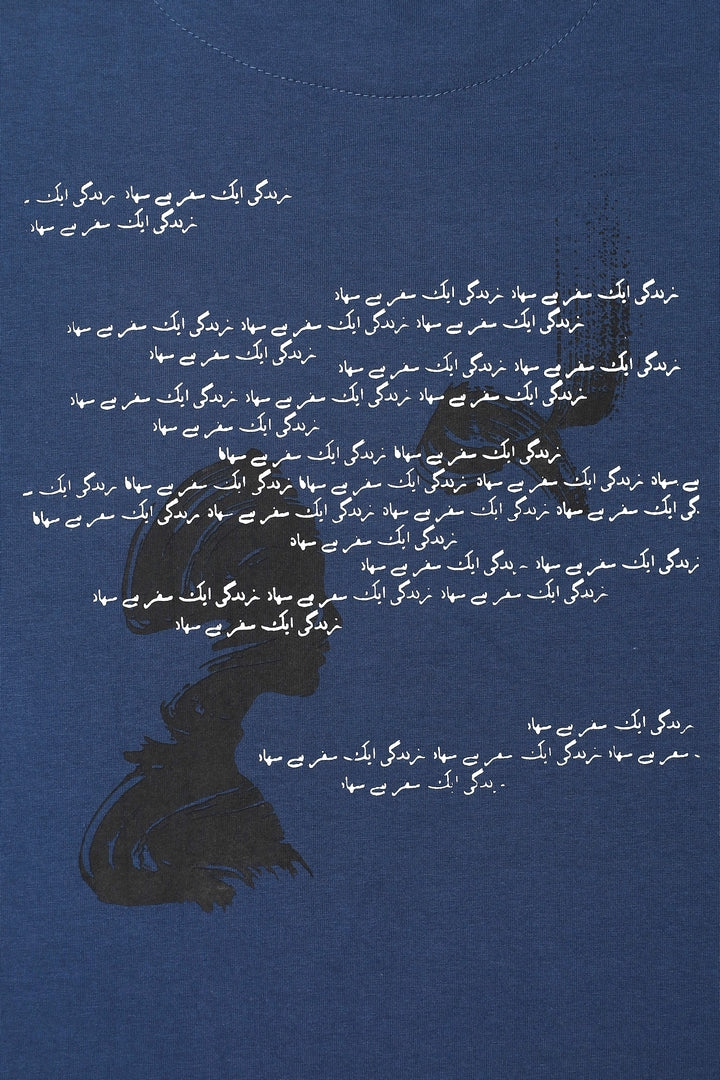 زندگی ایک سفر ہے سہانا زندگی ایک ۔
زندگی ایک سفر ہے سہانا
زندگی ایک سفر ہے سہانا زندگی ایک سفر ہے سہانا
زندگی ایک سفر ہے سہانا زندگی ایک سفر ہے سہانا زندگی ایک سفر ہے سہانا
زندگی ایک سفر ہے سہانا
زندگی ایک سفر ہے سہانا زندگی ایک سفر ہے سہانا
زندگی ایک سفر ہے سہانا زندگی ایک سفر ہے سہانا زندگی ایک سفر ہے سہانا
زندگی ایک سفر ہے سہانا
زندگی ایک سفر ہے سہانا زندگی ایک سفر ہے سہانا
ہے سہانا زندگی ایک سفر ہے سہانا زندگی ایک سفر ہے سہانا زندگی ایک سفر ہے سہانا زندگی ایک ۔
گی ایک سفر ہے سہانا زندگی ایک سفر ہے سہانا زندگی ایک سفر ہے سہانا زندگی ایک سفر ہے سہانا
زندگی ایک سفر ہے سہانا
زندگی ایک سفر ہے سہانا ۔ ندگی ایک سفر ہے سہانا
زندگی ایک سفر ہے سہانا زندگی ایک سفر ہے سہانا زندگی ایک سفر ہے سہانا
زندگی ایک سفر ہے سہانا
زندگی ایک سفر ہے سہانا
۔ سفر ہے سہانا زندگی ایک سفر ہے سہانا زندگی ایک سفر ہے سہانا
۔ ندگی ایک سفر ہے سہانا